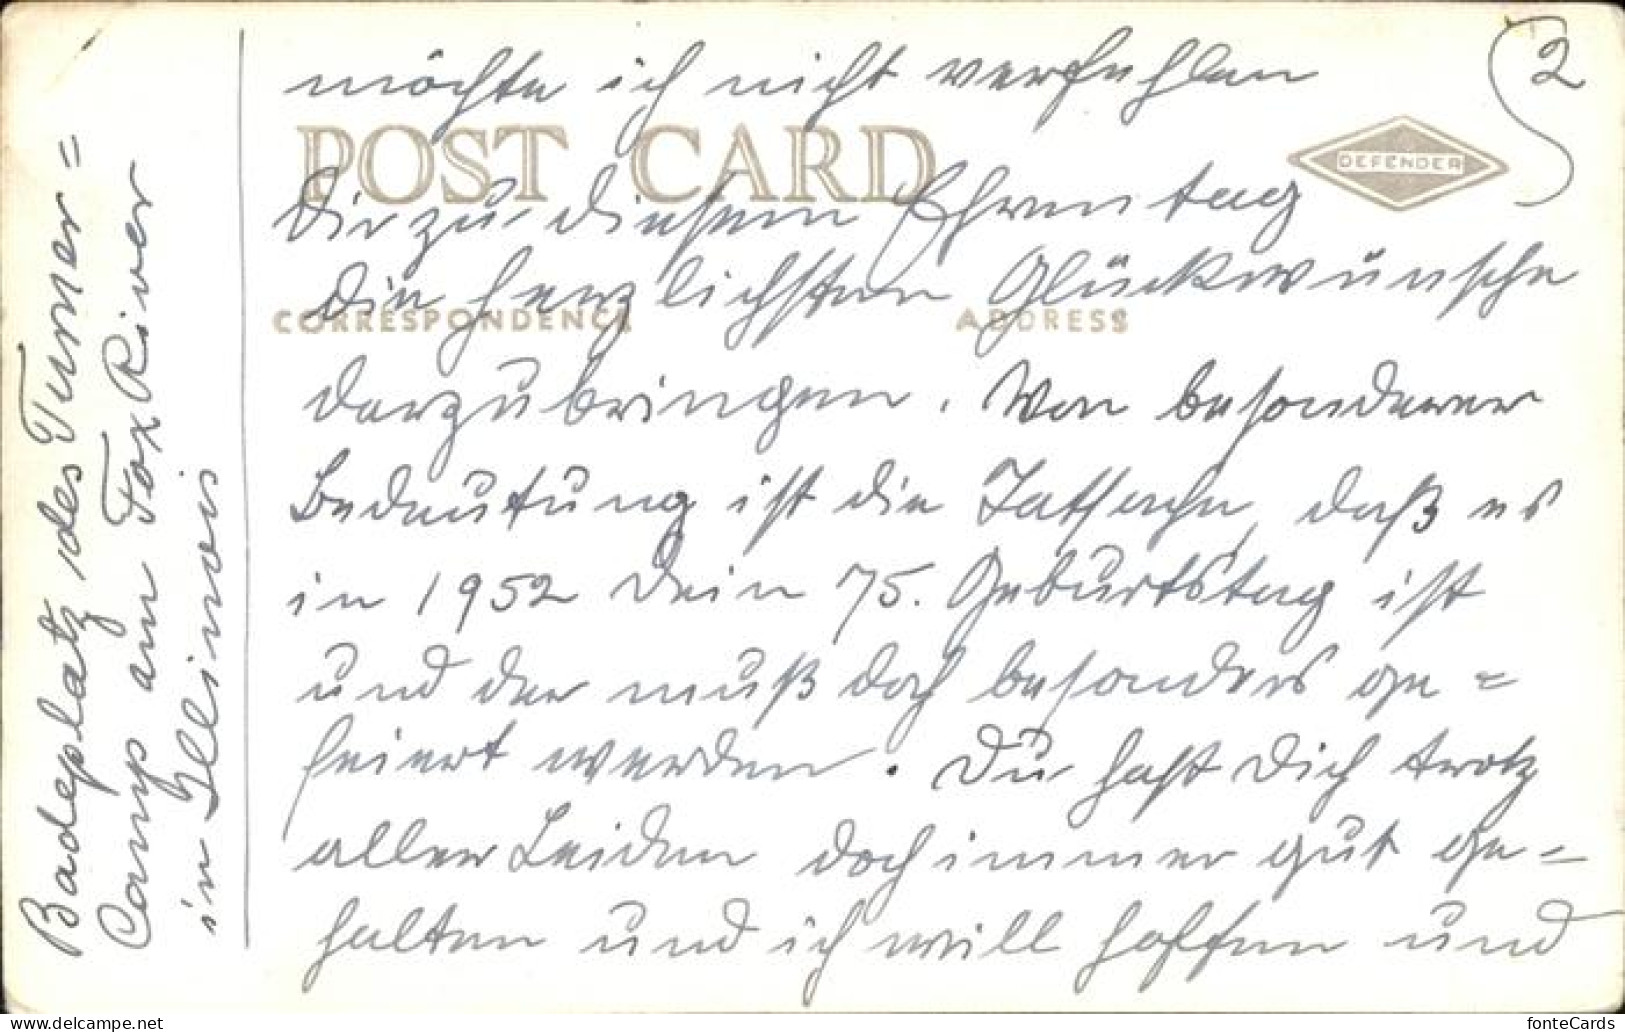 2
möchte ich nicht verfehlen
POST CARD
DEFENDER
Dir zu diesem Ehrentag
die herzlichsten Glückwünsche
CORRESPONDENCE
ADDRESS
darzubringen. Von besonderer
Bedeutung ist die Tatsache, daß es
in 1952 Dein 75. Geburtstag ist
und der muß doch besonders ge=
feiert werden. Du hast Dich trotz
aller Leiden doch immer gut ge=
halten und ich will hoffen und
Badeplatz des Turner=
Camps am Fox River
in Illinois
fonte-card.de
fonteCards